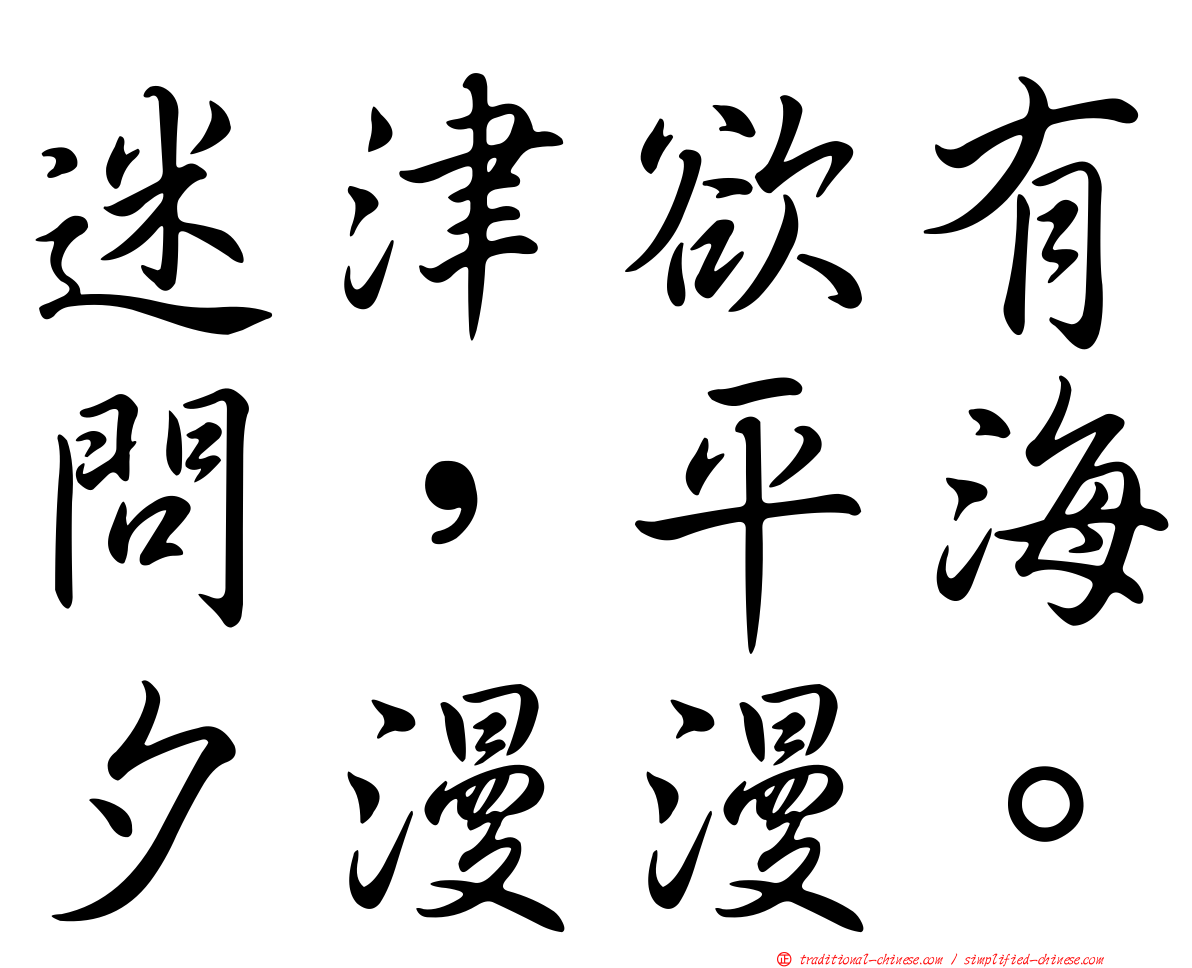 迷津欲有
問，平海
夕漫漫。
㊣ traditional-chinese.com / simplified-chinese.com